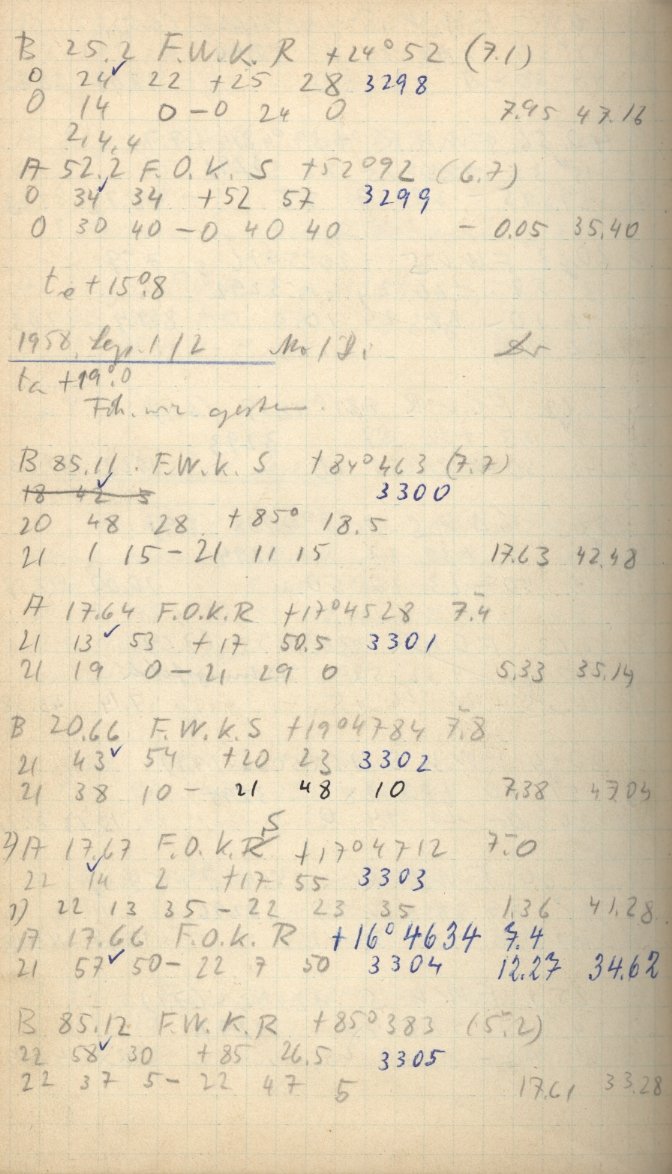 B 25.2 F.W.K.R +24°52 (7.1)
0 24 22 +25 28 3298
0 14 0 – 0 24 0 7.95 47.16
A 52.2 F.O.K.S +52°92 (6.7)
0 34 34 +52 57 3299
0 30 40 – 0 40 40 – 0.05 35.40
te +15°.8
1958, Sep. 1/2
ta +19°.0
wie gestern.
B 85.11 F.W.K.S +84°463 (7.7)
18 42 5 3300
20 48 28 +85° 18.5
21 1 15 – 21 11 15 17.63 42.48
A 17.64 F.O.K.R +17°4528 7.4
21 13 53 +17 50.5 3301
21 19 0 – 21 29 0 5.33 35.14
B 20.66 F.W.K.S +19°4784 7.8
21 43 54 +20 23 3302
21 38 10 – 21 48 10 7.38 47.04
2) A 17.67 F.O.K.S +17°4712 7.0
22 14 2 +17 55 3303
1) 22 13 35 – 22 23 35 1.36 41.28
A 17.66 F.O.K.R +16°4634 7.4
21 57 50 – 22 7 50 3304 12.27 34.62
B 85.12 F.W.K.R +85°383 (5.2)
22 58 30 +85 26.5 3305
22 37 5 – 22 47 5 17.61 33.28